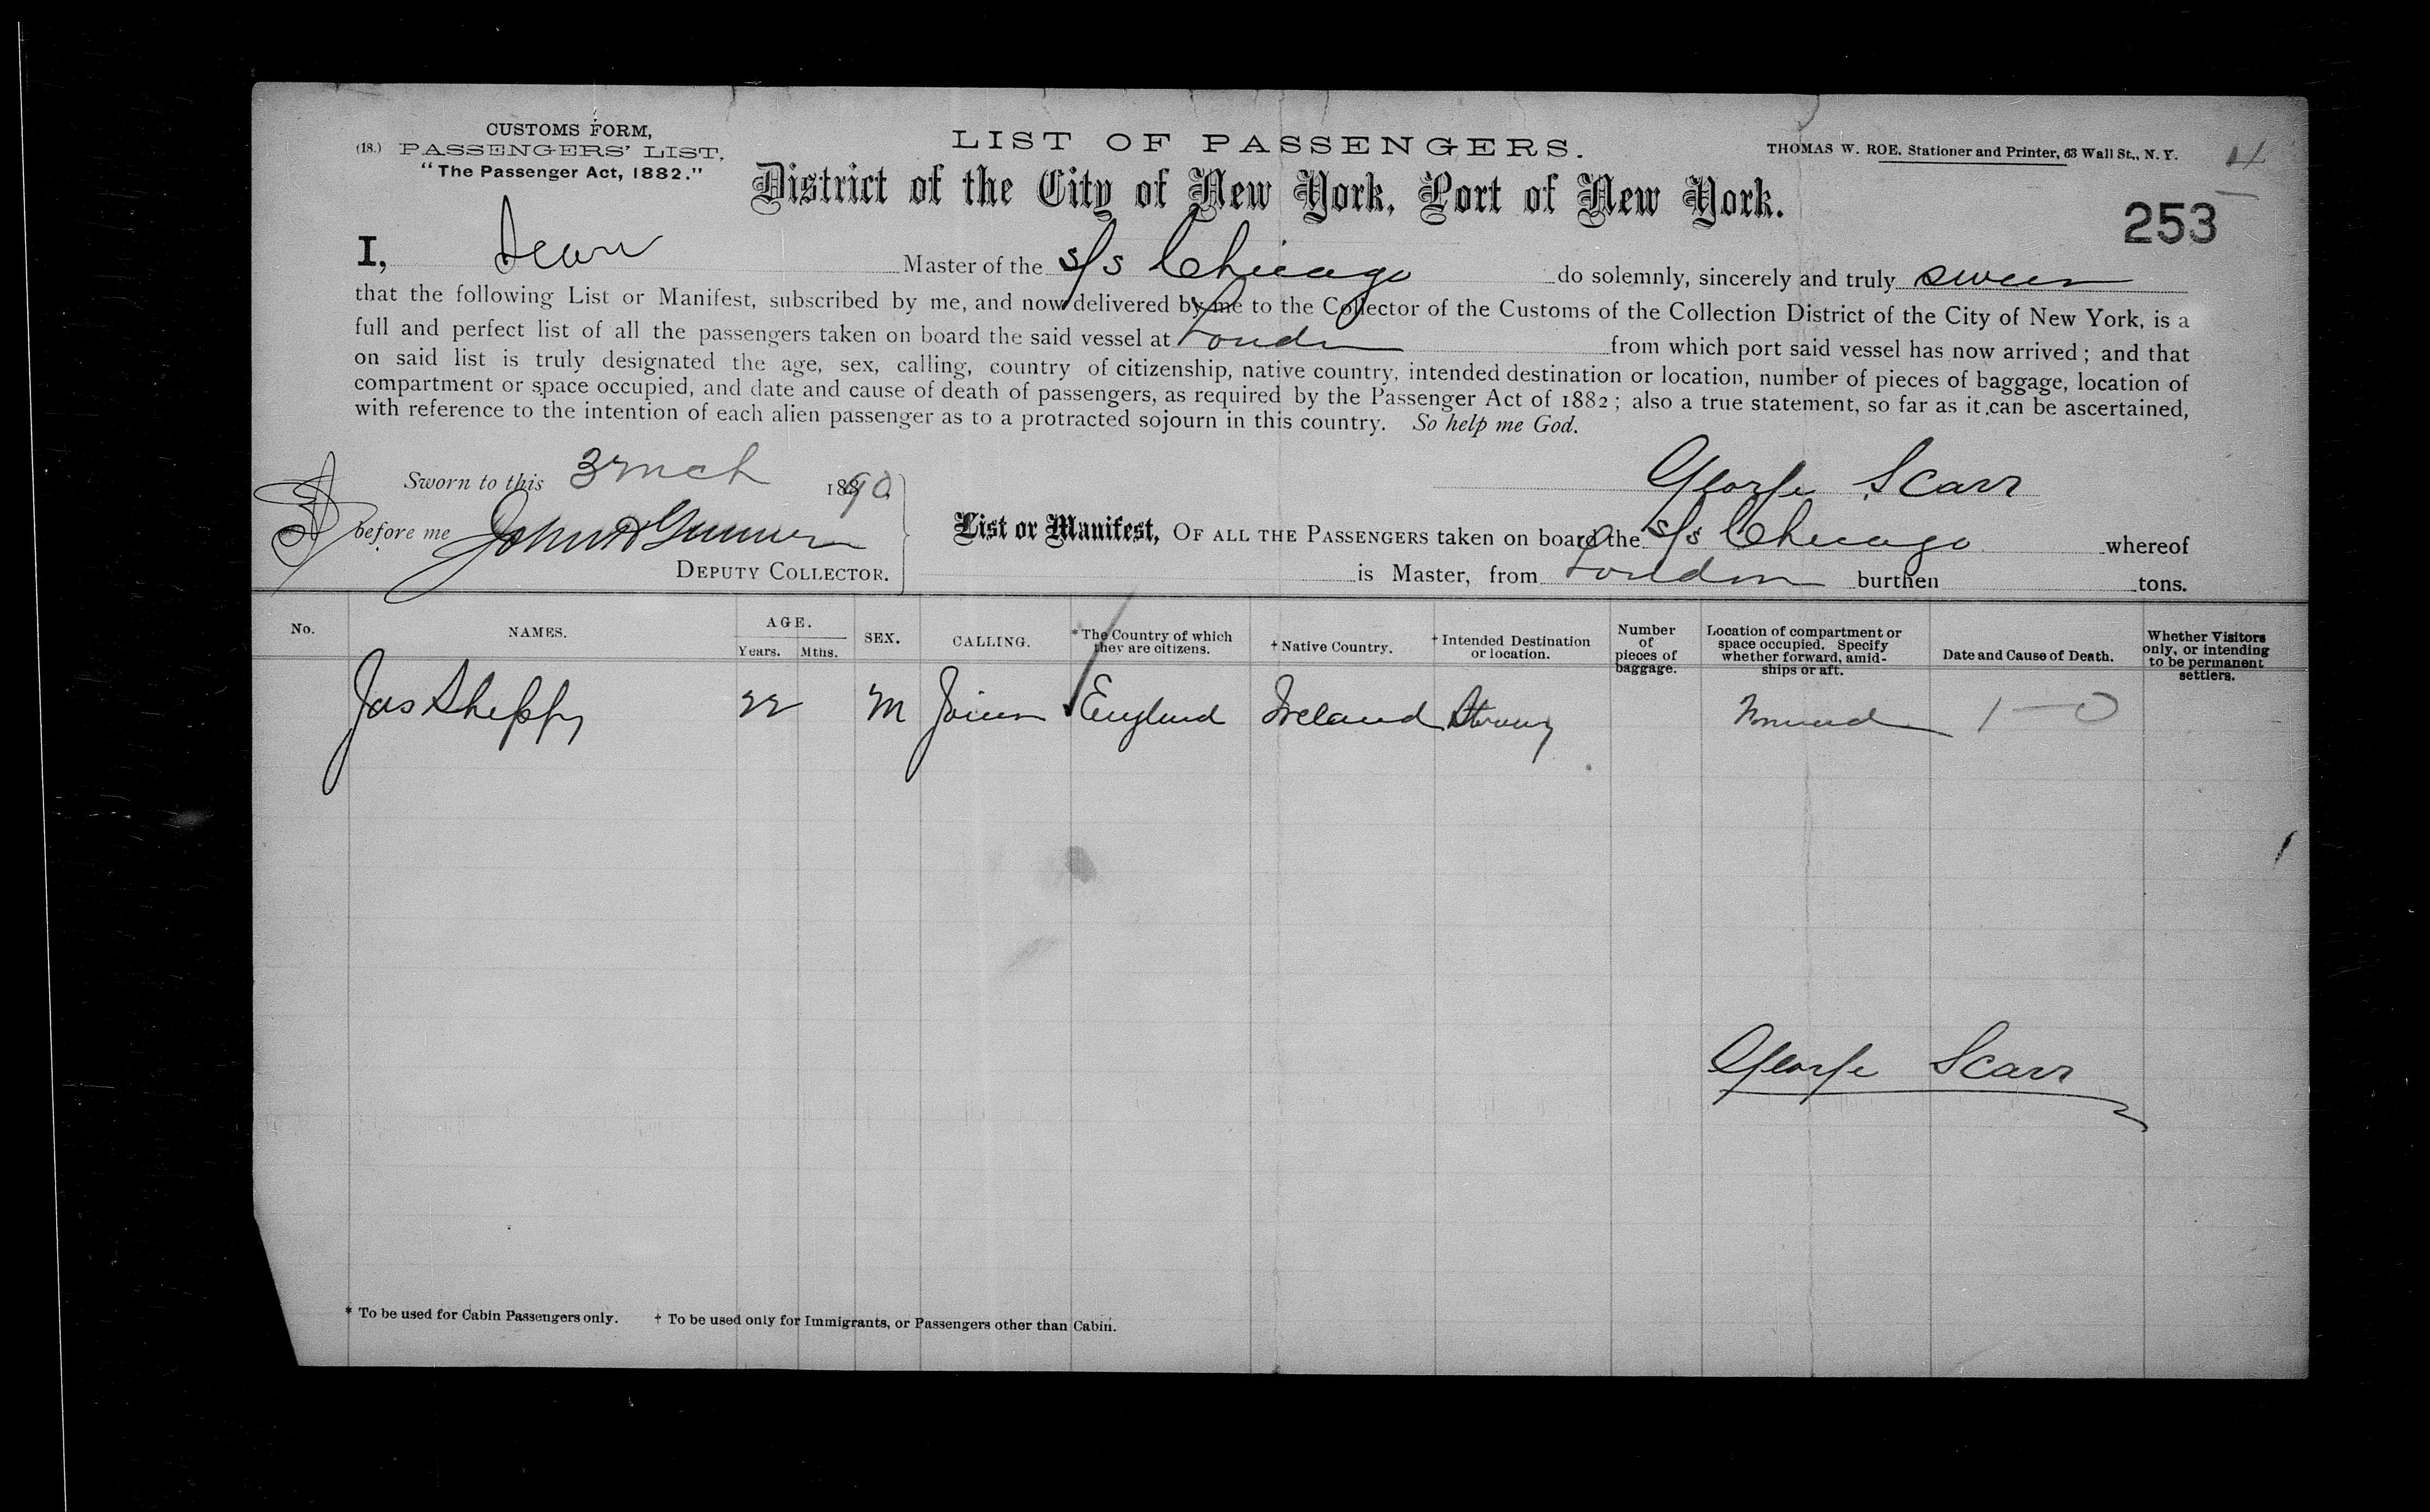 CUSTOMS FORM,
(18.) PASSENGERS' LIST,
"The Passenger Act, 1882."
LIST OF PASSENGERS.
THOMAS W. ROE, Stationer and Printer, 63 Wall St., N. Y.
District of the City of New York, Port of New York.
253
I, Scarr Master of the S/s Chicago do solemnly, sincerely and truly swear
that the following List or Manifest, subscribed by me, and now delivered by me to the Collector of the Customs of the Collection District of the City of New York, is a
full and perfect list of all the passengers taken on board the said vessel at London from which port said vessel has now arrived; and that
on said list is truly designated the age, sex, calling, country of citizenship, native country, intended destination or location, number of pieces of baggage, location of
compartment or space occupied, and date and cause of death of passengers, as required by the Passenger Act of 1882; also a true statement, so far as it can be ascertained,
with reference to the intention of each alien passenger as to a protracted sojourn in this country. So help me God.
Sworn to this 3 mch 1890
George Scarr
before me John
DEPUTY COLLECTOR.
List or Manifest, OF ALL THE PASSENGERS taken on board the S/s Chicago whereof
is Master, from London burthen tons.
No. NAMES. AGE. Years. Mths. SEX. CALLING. * The Country of which they are citizens. † Native Country. † Intended Destination or location. Number of pieces of baggage. Location of compartment or space occupied. Specify whether forward, amidships or aft. Date and Cause of Death. Whether Visitors only, or intending to be permanent settlers.
Jas Sheppy 22 M Joiner England Ireland 1 — 0
George Scarr
* To be used for Cabin Passengers only. † To be used only for Immigrants, or Passengers other than Cabin.